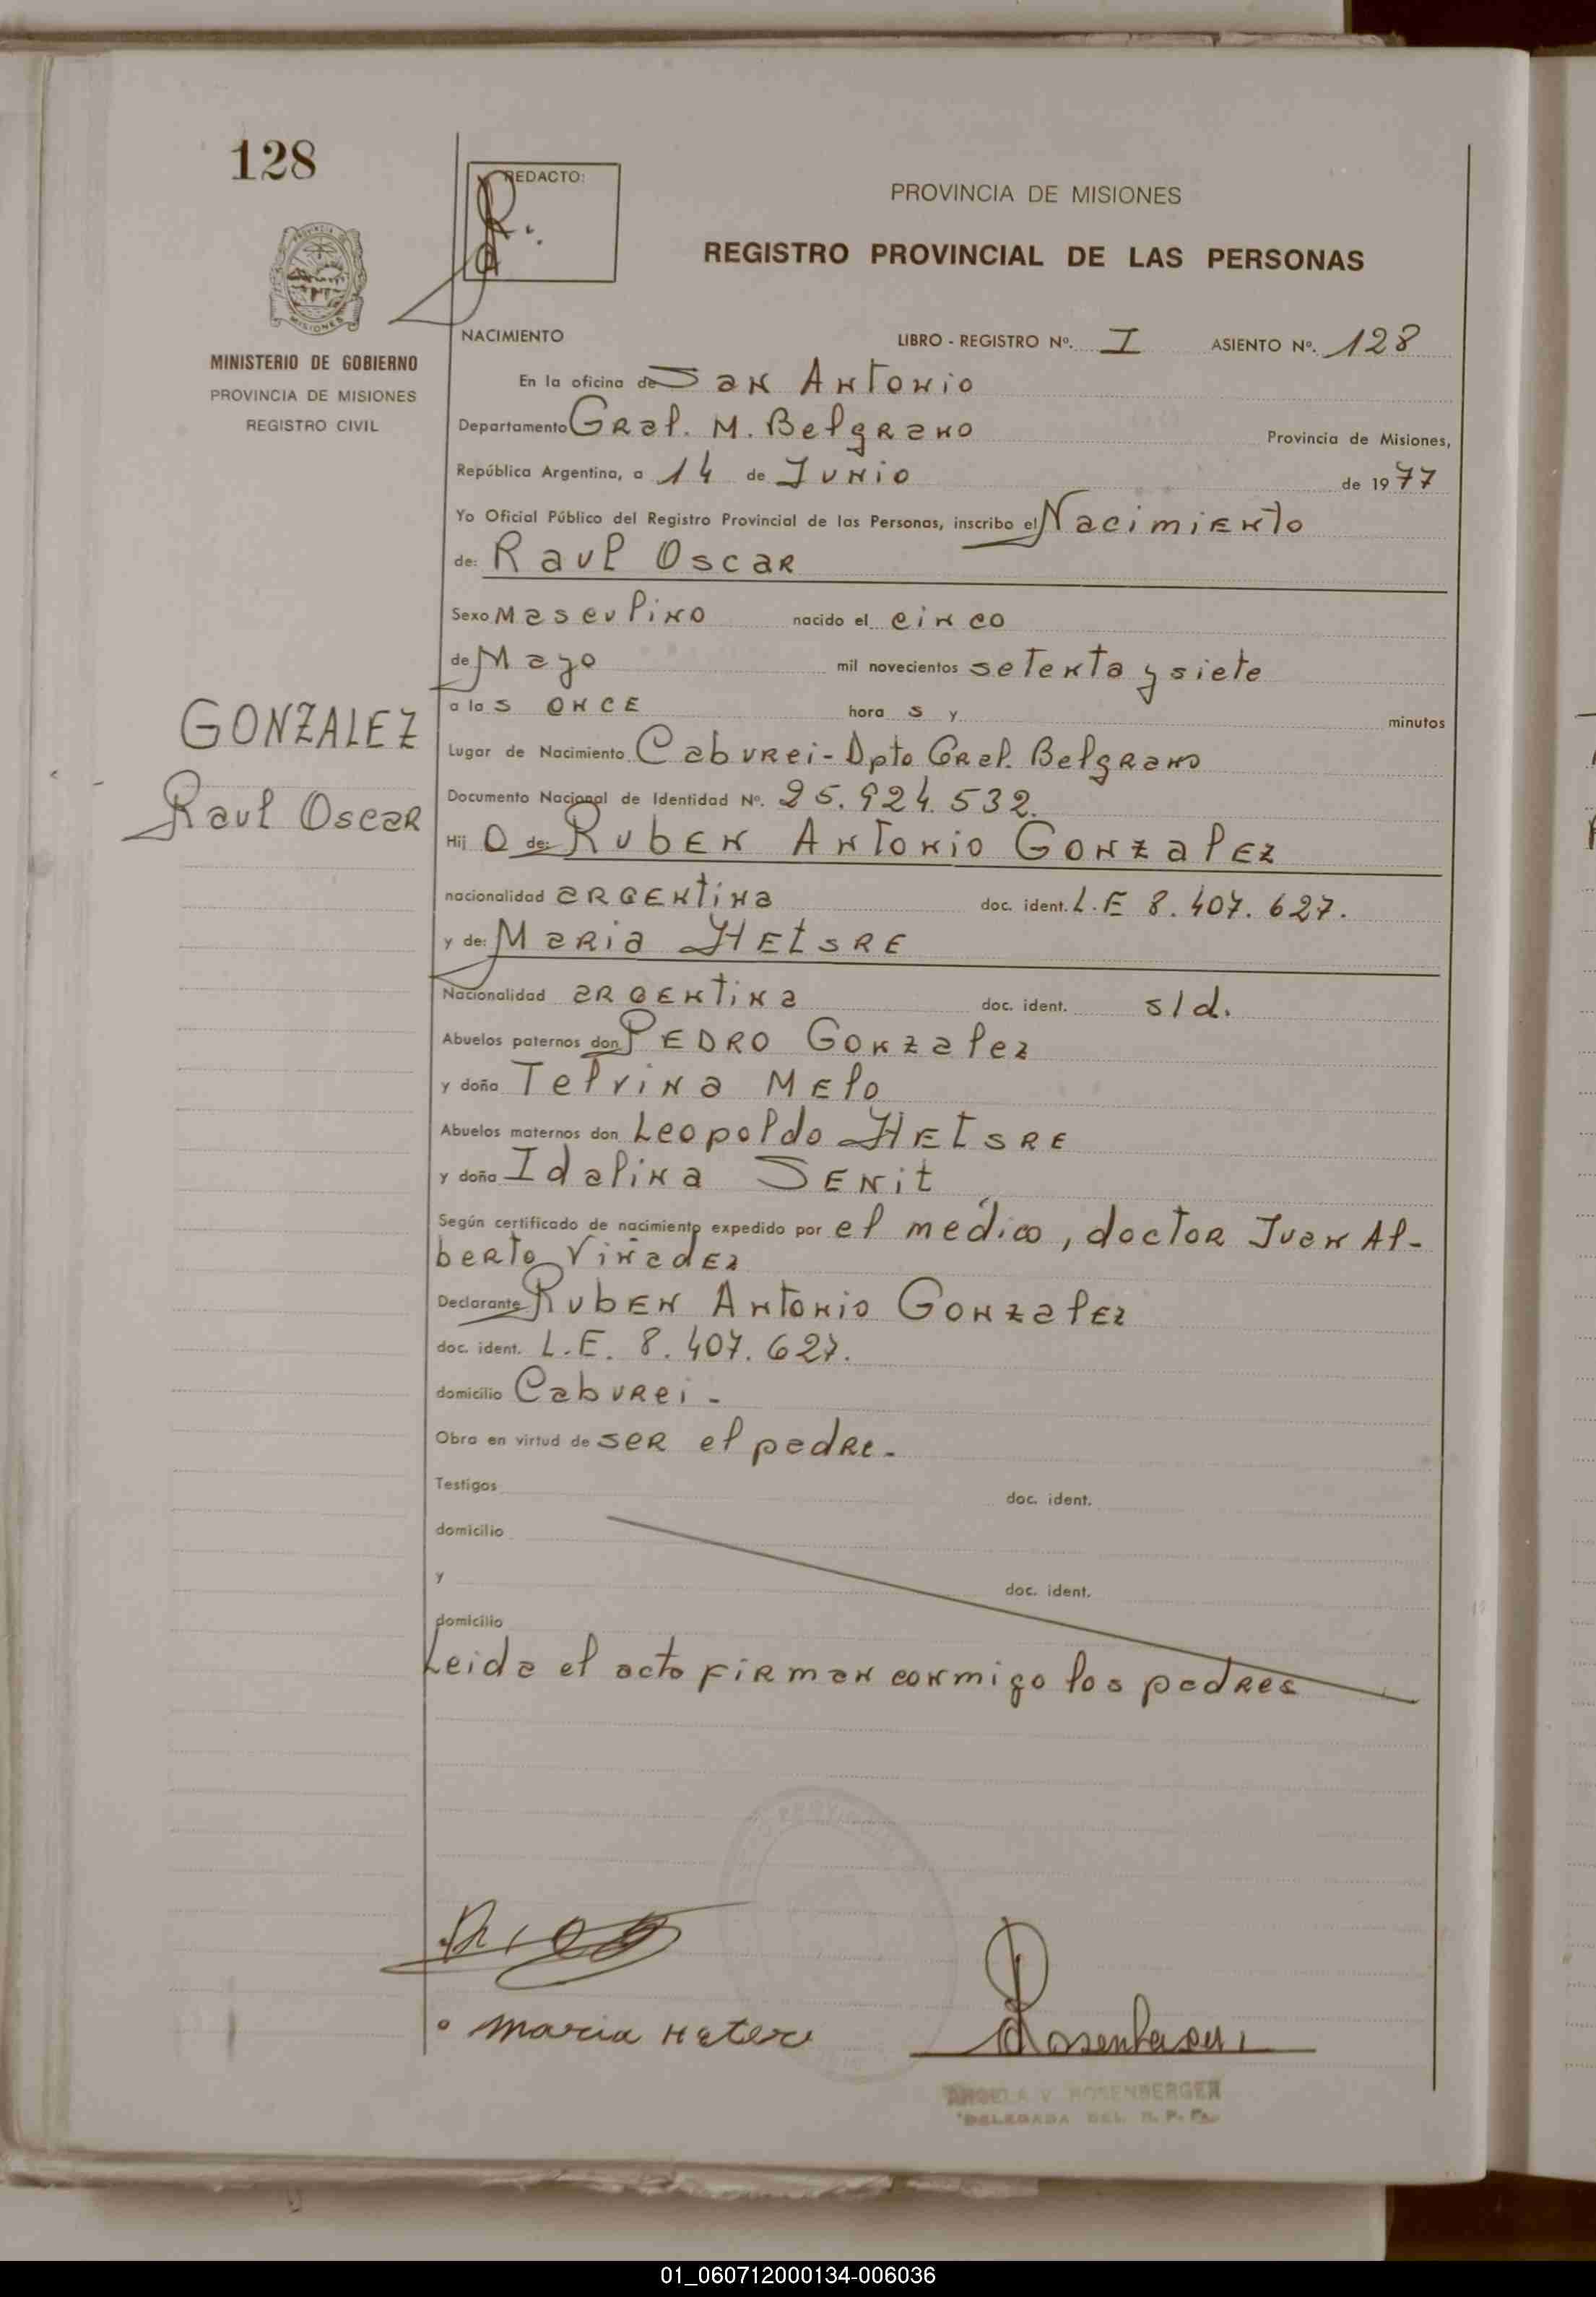 128
REDACTO:
PROVINCIA DE MISIONES
REGISTRO PROVINCIAL DE LAS PERSONAS
MINISTERIO DE GOBIERNO
PROVINCIA DE MISIONES
REGISTRO CIVIL
NACIMIENTO LIBRO - REGISTRO Nº. I ASIENTO Nº. 128
En la oficina de San Antonio
Departamento Gral. M. Belgrano Provincia de Misiones,
República Argentina, a 14 de Junio de 1977
Yo Oficial Público del Registro Provincial de las Personas, inscribo el Nacimiento
de: Raul Oscar
Sexo Masculino nacido el cinco
de Mayo mil novecientos setenta y siete
a las once horas y minutos
GONZALEZ
Raul Oscar
Lugar de Nacimiento Caburei - Dpto Gral. Belgrano
Documento Nacional de Identidad Nº. 25.924.532.
Hijo de: Ruben Antonio Gonzalez
nacionalidad argentina doc. ident. L.E 8.407.627.
y de: Maria HEtsRE
Nacionalidad argentina doc. ident. s/d.
Abuelos paternos don Pedro Gonzalez
y doña Telvina Melo
Abuelos maternos don Leopoldo HEtsRE
y doña Idalina Senit
Según certificado de nacimiento expedido por el médico, doctor Juan Al-
berto Viñadez
Declarante Ruben Antonio Gonzalez
doc. ident. L.E. 8.407.627.
domicilio Caburei -
Obra en virtud de ser el padre -
Testigos doc. ident.
domicilio
y doc. ident.
domicilio
Leida el acto firman conmigo los padres
Maria Heter
ANGELA V. ROSENBERGER
DELEGADA DEL R. P. P.
01_060712000134-006036